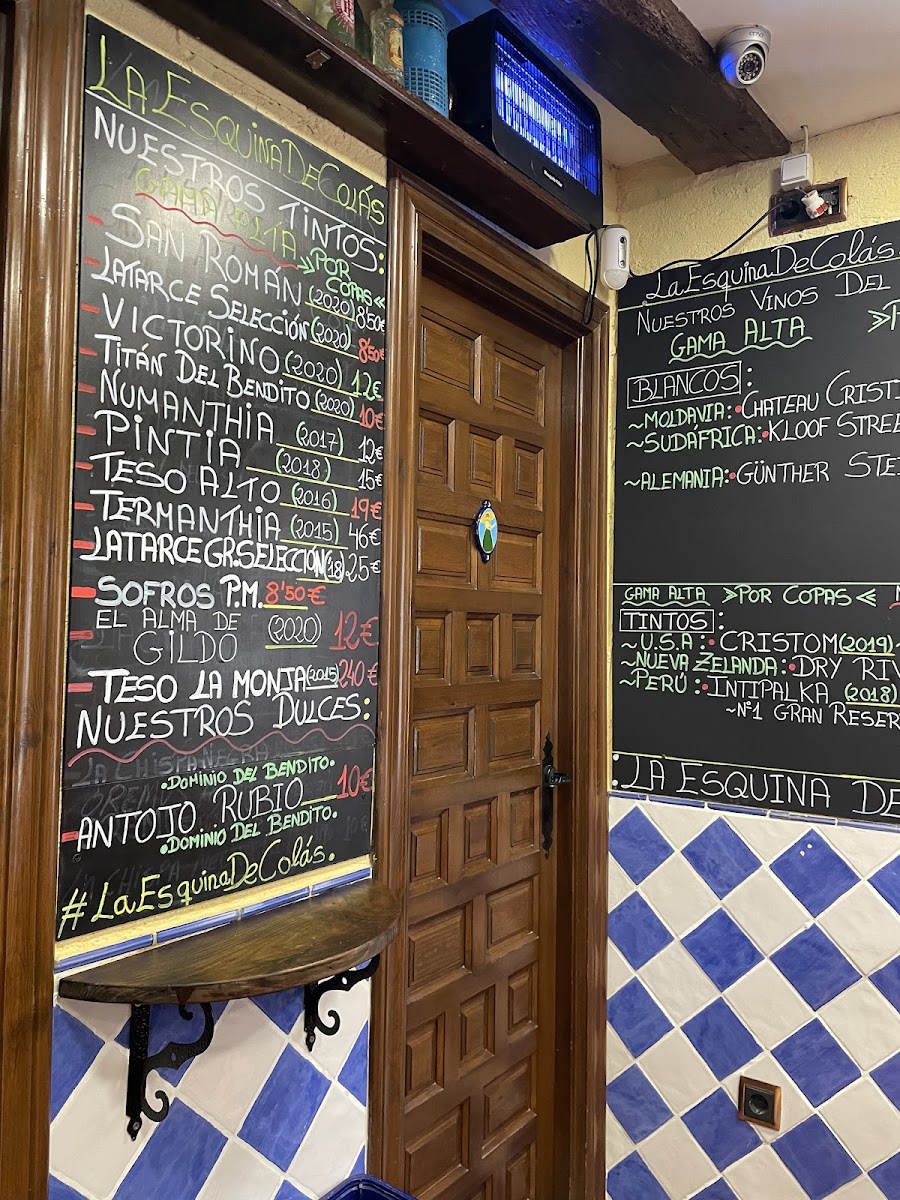 LA ESQUINA DE COLÁS
NUESTROS TINTOS:
GAMA ALTA »POR COPAS«
SAN ROMÁN (2020) 8'50€
LATARCE SELECCIÓN (2020) 8'50€
VICTORINO (2020) 12€
TITÁN DEL BENDITO (2020) 10€
NUMANTHIA (2017) 12€
PINTIA (2018) 15€
TESO ALTO (2016) 19€
TERMANTHIA (2015) 46€
LATARCE GR.SELECCIÓN(18) 25€
SOFROS P.M. 8'50€
EL ALMA DE
GILDO (2020) 12€
TESO LA MONJA (2015) 240€
NUESTROS DULCES:
LA CHISPA NEGRA
•DOMINIO DEL BENDITO•
ANTOJO RUBIO 10€
•DOMINIO DEL BENDITO•
#LaEsquinaDeColás.
LaEsquinaDeColás.
NUESTROS VINOS DEL
GAMA ALTA
BLANCOS:
~MOLDAVIA:•CHATEAU CRISTI
~SUDÁFRICA:•KLOOF STREE
~ALEMANIA:•GÜNTHER STE
GAMA ALTA »POR COPAS«
TINTOS:
~U.S.A:•CRISTOM(2019)~
~NUEVA ZELANDA:•DRY RIV
~PERÚ:•INTIPALKA (2018)
~Nº1 GRAN RESER
:LA ESQUINA DE